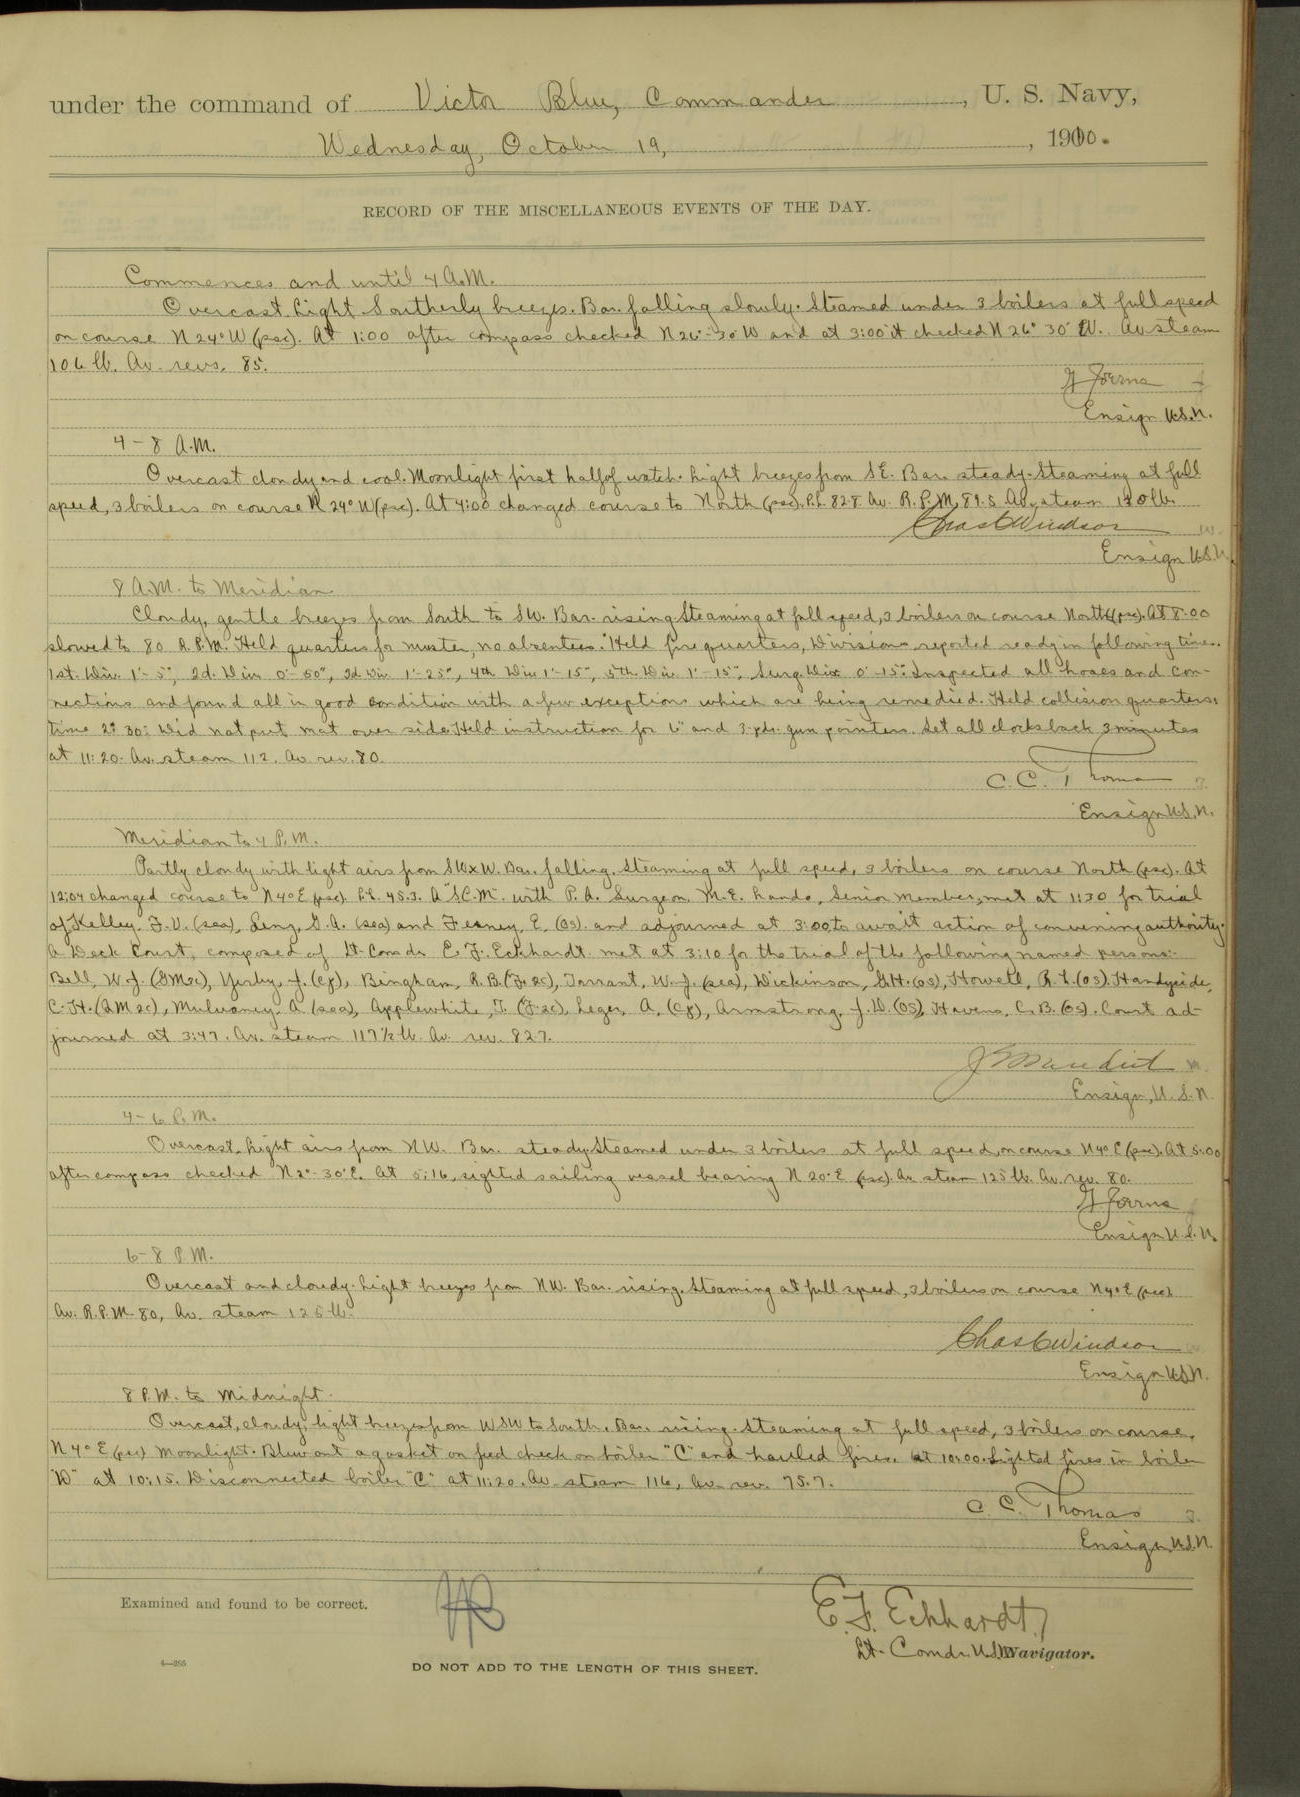 under the command of Victor Blue, Commander, U. S. Navy,
Wednesday, October 19, 1910.
RECORD OF THE MISCELLANEOUS EVENTS OF THE DAY.
Commences and until 4 A.M.
Overcast. Light Southerly breezes. Bar. falling slowly. Steamed under 3 boilers at full speed
on course N 24° W (psc). At 1:00 after compass checked N 26°-30' W and at 3:00 it checked N 26° 30' W. Av. steam
106 lb. Av. revs. 85.
Ensign U.S.N.
4-8 A.M.
Overcast cloudy and cool. Moonlight first half of watch. Light breezes from S.E. Bar. steady. Steaming at full
speed, 3 boilers on course N 24° W (psc). At 4:00 changed course to North (psc). P.L. 82.8 Av. R.P.M. 89.5 Av. steam 120 lb.
Chas C Windsor
Ensign U.S.N.
8 A.M. to Meridian
Cloudy, gentle breezes from South to SW. Bar. rising. Steaming at full speed, 3 boilers on course North (psc). At 8:00
slowed to 80 R.P.M. Held quarters for muster, no absentees. Held fire quarters, Divisions reported ready in following time.
1st. Div. 1'-5", 2d. Div. 0'-50", 3d Div. 1'-25", 4th Div. 1'-15", 5th Div. 1'-15", Surg. Div. 0'-15". Inspected all hoses and con-
nections and found all in good condition with a few exceptions which are being remedied. Held collision quarters:
time 2' 30". Did not put mat over side. Held instruction for 6" and 3 pdr. gun pointers. Set all clocks back 3 minutes
at 11:20. Av. steam 112. Av. rev. 80.
C. C. Thomas
Ensign U.S.N.
Meridian to 4 P.M.
Partly cloudy with light airs from SWxW. Bar. falling. Steaming at full speed, 3 boilers on course North (psc). At
12:04 changed course to N 4° E (psc). P.L. 45.3. A "S.C.M." with P.A. Surgeon M.E. Lando, Senior Member, met at 1:30 for trial
of Kelley, F.V. (sea), Lenz, G.A. (sea) and Feeney, E. (OS). and adjourned at 3:00, to await action of convening authority.
A Deck Court, composed of Lt. Comdr. E. F. Eckhardt met at 3:10 for the trial of the following named persons:-
Bell, W.J. (GM3c), Yerby, J. (Cp), Bingham, R.B. (F.2c), Tarrant, W.J. (sea), Dickinson, G.H. (OS), Howell, R.L. (OS), Handyside,
C.H. (GM 2c), Mulvaney, A. (sea), Applewhite, T. (F.2c), Leger, A. (Cp), Armstrong, J.D. (OS), Havens, C.B. (OS). Court ad-
journed at 3:47. Av. steam 117½ lb. Av. rev. 82.7.
Ensign, U.S.N.
4-6 P.M.
Overcast. Light airs from NW. Bar. steady. Steamed under 3 boilers at full speed, on course N 4° E (psc). At 5:00
after compass checked N 2°-30' E. At 5:16, sighted sailing vessel bearing N 20° E (psc). Av. steam 125 lb. Av. rev. 80.
Ensign U.S.N.
6-8 P.M.
Overcast and cloudy. Light breezes from NW. Bar. rising. Steaming at full speed, 3 boilers on course N 4° E (psc).
Av. R.P.M. 80, Av. steam 125 lb.
Chas C Windsor
Ensign U.S.N.
8 P.M. to Midnight.
Overcast, cloudy, light breezes from WSW to South. Bar. rising. Steaming at full speed, 3 boilers on course,
N 4° E (psc) Moonlight. Blew out a gasket on feed check on boiler "C" and hauled fires. At 10:00. Lighted fires in boiler
"D" at 10:15. Disconnected boiler "C" at 11:20. Av. steam 116, Av. rev. 75.7.
C. C. Thomas
Ensign, U.S.N.
Examined and found to be correct.
E. F. Eckhardt
Lt. Comdr. U.S.N. Navigator.
4-285
DO NOT ADD TO THE LENGTH OF THIS SHEET.